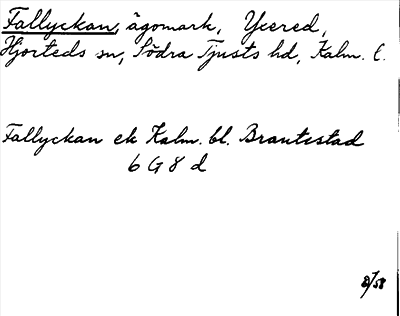 Fallyckan, ägomark, Yxered,
Hjorteds sn, Södra Tjusts hd, Kalm. l.
Fallyckan ek Kalm. bl.
6 G 8 d